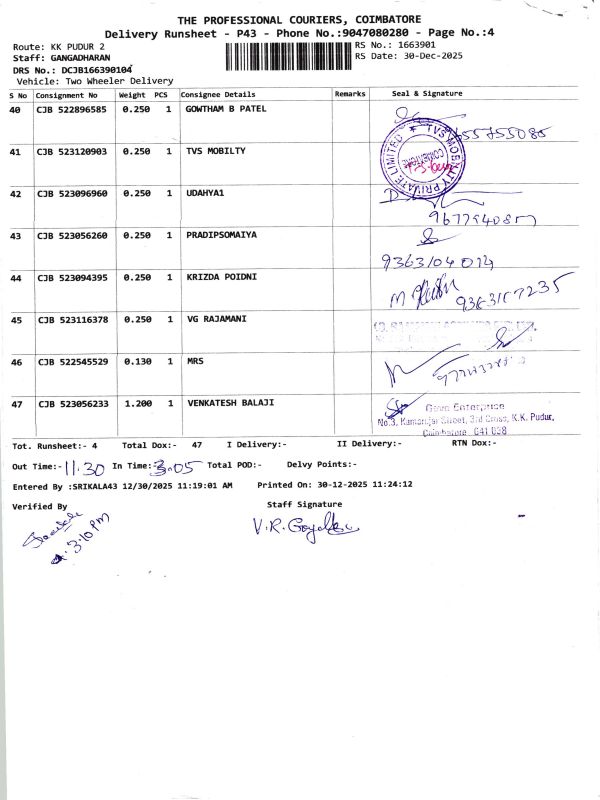 THE PROFESSIONAL COURIERS, COIMBATORE
Delivery Runsheet - P43 - Phone No.:9047080280 - Page No.:4
Route: KK PUDUR 2
RS No.: 1663901
Staff: GANGADHARAN
RS Date: 30-Dec-2025
DRS No.: DCJB166390104
Vehicle: Two Wheeler Delivery
S No Consignment No Weight PCS Consignee Details Remarks Seal & Signature
40 CJB 522896585 0.250 1 GOWTHAM B PATEL
41 CJB 523120903 0.250 1 TVS MOBILTY
TVS MOBILITY PRIVATE LIMITED ★
42 CJB 523096960 0.250 1 UDAHYA1
43 CJB 523056260 0.250 1 PRADIPSOMAIYA
9363104014
44 CJB 523094395 0.250 1 KRIZDA POIDNI
9363167235
45 CJB 523116378 0.250 1 VG RAJAMANI
46 CJB 522545529 0.130 1 MRS
47 CJB 523056233 1.200 1 VENKATESH BALAJI
Enterprise
No.3, Kamarajar Street, 3rd Cross, K.K. Pudur,
Coimbatore 641 038
Tot. Runsheet:- 4 Total Dox:- 47 I Delivery:- II Delivery:- RTN Dox:-
Out Time:- 11.30 In Time:- 3.05 Total POD:- Delvy Points:-
Entered By :SRIKALA43 12/30/2025 11:19:01 AM Printed On: 30-12-2025 11:24:12
Verified By Staff Signature
3:10 PM